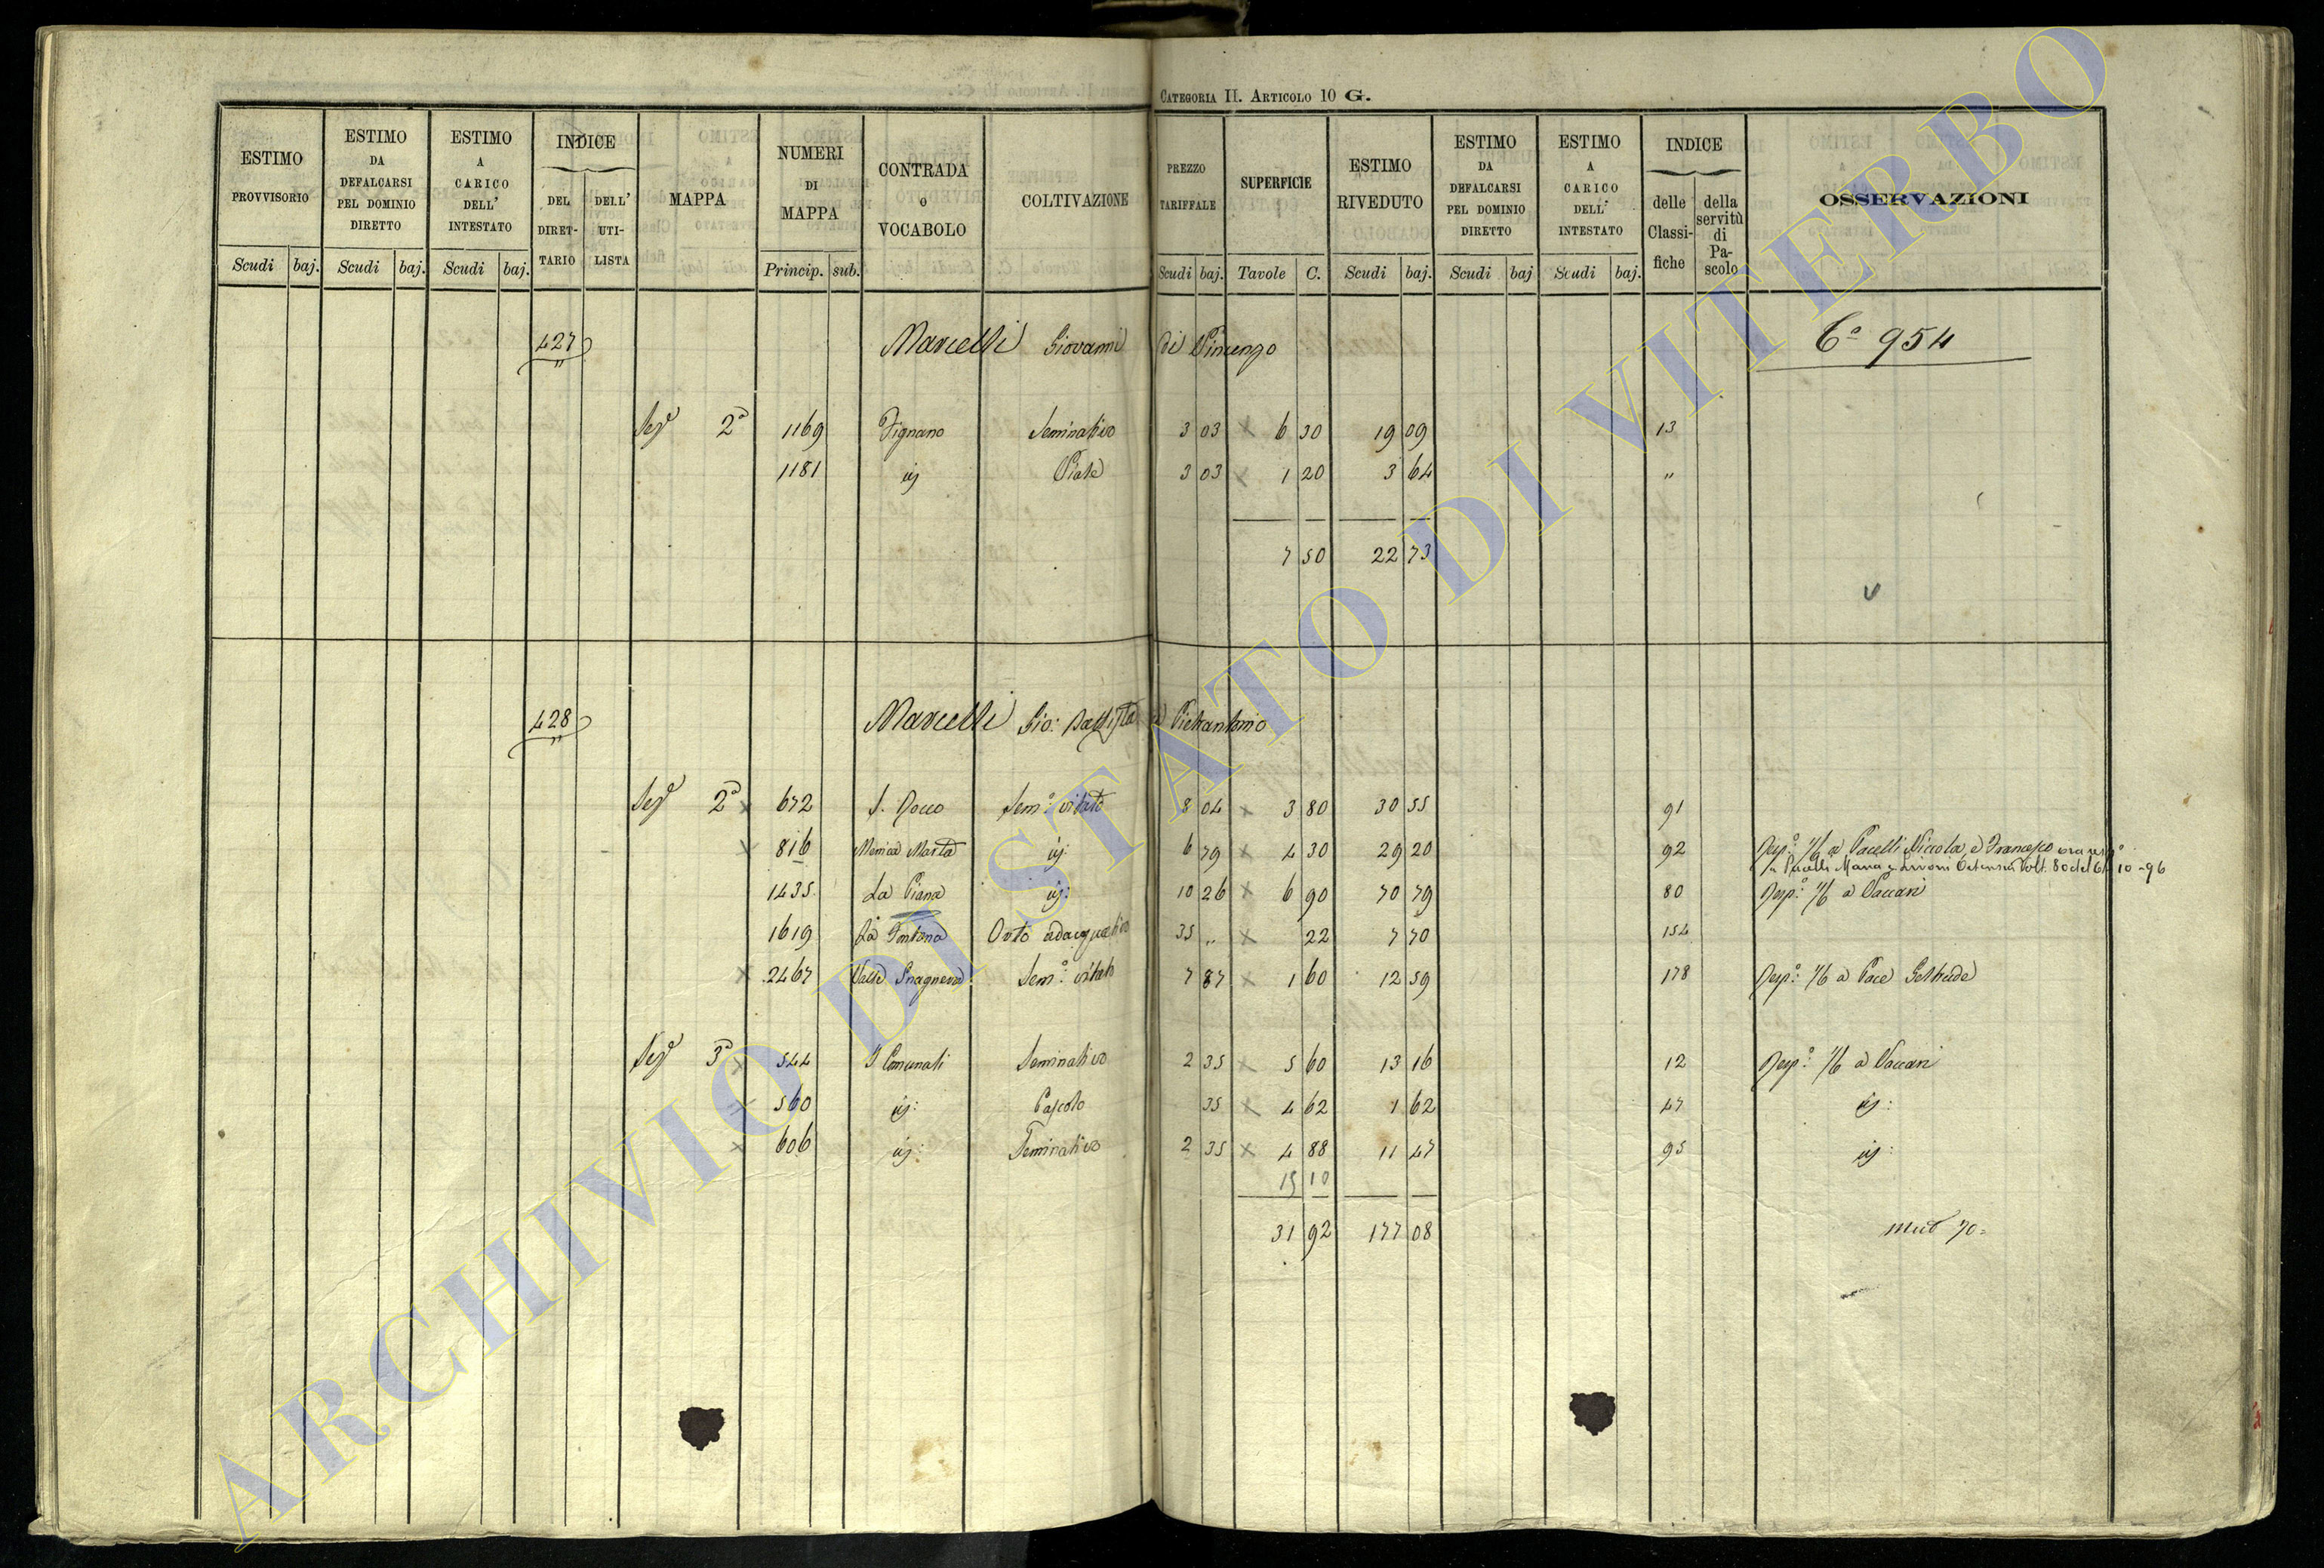 CATEGORIA II. ARTICOLO 10 G.
ESTIMO PROVVISORIO
ESTIMO DA DEFALCARSI PEL DOMINIO DIRETTO
ESTIMO A CARICO DELL' INTESTATO
INDICE
DEL DIRET-TARIO
DELL' UTI-LISTA
MAPPA
NUMERI DI MAPPA
CONTRADA o VOCABOLO
COLTIVAZIONE
PREZZO TARIFFALE
SUPERFICIE
ESTIMO RIVEDUTO
ESTIMO DA DEFALCARSI PEL DOMINIO DIRETTO
ESTIMO A CARICO DELL' INTESTATO
INDICE
delle Classi-fiche
della servitù di Pa-scolo
OSSERVAZIONI
Scudi baj. Scudi baj. Scudi baj. Princip. sub. Scudi baj. Tavole C. Scudi baj. Scudi baj Scudi baj.
427 Marcelli Giovanni di Vincenzo Co 954
Seze 2a 1169 Vignano Seminativo 3 03 x 6 30 19 09 13
1181 id Prato 3 03 x 1 20 3 64 "
7 50 22 73
428 Marcelli Gio: Battista Pietrantonio
Seze 2a x 672 S. Rocco Semo: vitato 8 04 x 3 80 30 55 91
x 816 Marta id: 6 79 x 4 30 29 20 92 Respo: 1/6 a Pacelli Niccola e Francesco ora
Pacelli Maria Volt. 80 del 6 10-96
1435 La Piana id: 10 26 x 6 90 70 79 80 Respo: 1/6 a Vaccari
1619 La Fontana Orto adacquativo 35 " x 22 7 70 154
x 2467 Valle Semo: vitato 7 87 x 1 60 12 59 178 Respo: 1/6 a Pace Geltrude
Seze 3a x 544 I Comunali Seminativo 2 35 x 5 60 13 16 12 Respo: 1/6 a Vaccari
x 560 id: Pascolo 35 x 4 62 1 62 47 id:
x 606 id: Seminativo 2 35 x 4 88 11 47 95 id:
15 10
31 92 177 08 70=
ARCHIVIO DI STATO DI VITERBO